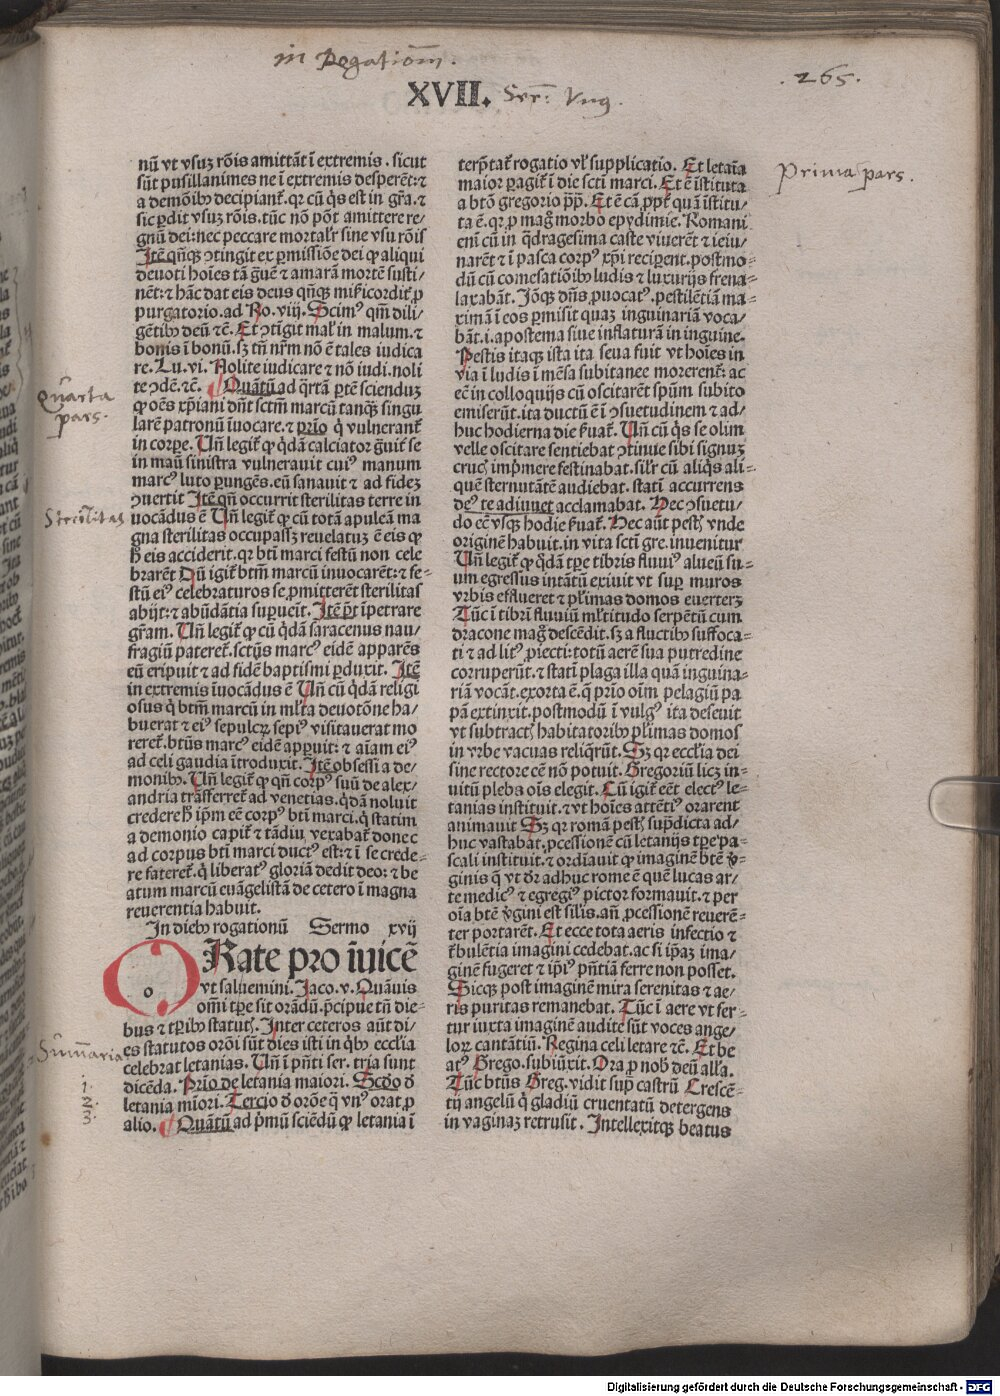 in Rogationū.
XVII. Ser: Vnꝰ.
.265.
nū vt vsuꝫ rōis amittāt ī extremis . sicut
sūt pusillanimes ne ī extremis desperēt: ⁊
a demōibꝰ decipiant̄. qꝛ cū q̇s est in gr̄a. ⁊
sic ꝑdit vsuꝫ rōis. tūc nō pōt amittere re/
gnū dei: nec peccare mortalr̄ sine vsu rōis
Itē qn̄qꝫ ↄtingit ex ꝑmissiōe dei ꝙ aliqui
deuoti hoīes tā gͣuē ⁊ amarā mortē susti/
nēt: ⁊ hāc dat eis deus qn̄qꝫ mīcordit̄ ꝓ
purgatorio. ad Ro. viij. Scimꝰ qm̄ dili/
gētibꝰ deū ⁊c̄. Et ↄtigit mal' in malum. ⁊
bonis ī bonū. sꝫ tn̄ nr̄m nō ē tales iudica
re. Lu. vi. Nolite iudicare ⁊ nō iudi. noli
te ↄdē. ⁊c̄. Quātū ad q̈rtā ꝑtē scienduꝫ
ꝙ oēs xp̄iani dn̄t sctm̄ marcū tanqꝫ singu
larē patronū īuocare. ⁊ prīo q̇ vulnerant̄
in corꝑe. Un̄ legit̄ ꝙ q̇dā calciator gͣuit̄ se
in manū sinistra vulnerauit cuiꝰ manum
marcꝰ luto ꝑungēs. eū sanauit ⁊ ad fideꝫ
ↄuertit Itē qn̄ occurrit sterilitas terre in
uocādus ē Un̄ legit̄ ꝙ cū totā apuleā ma
gna sterilitas occupassꝫ reuelatuꝫ ē eis ꝙ
h̄ eis acciderit. qꝛ bti marci festū non cele
brarēt Dū igit̄ btm̄ marcū inuocarēt: ⁊ fe=
stū eiꝰ celebraturos se ꝓmitterēt sterilitas
abijt: ⁊ abūdātia suꝑueīt. Itē pt̄ īpetrare
gr̄am. Un̄ legit̄ ꝙ cū q̇dā saracenus nau/
fragiū pateret̄. sctūs marcꝰ eidē apparēs
eū eripuit ⁊ ad fidē baptismi ꝑduxit. Itē
in extremis īuocādus ē Un̄ cū q̇dā religi
osus q̇ btm̄ marcū in ml̄ta deuotōne ha/
buerat ⁊ eiꝰ sepulcꝝ sepiꝰ visitauerat mo
reret̄. btūs marcꝰ eidē apꝑuit: ⁊ aīam eiꝰ
ad celi gaudia ītroduxit. Itē obsessi a de/
monibꝰ. Un̄ legit̄ ꝙ qn̄ corpꝰ suū de alex/
andria trāsferret̄ ad venetias. q̇dā noluit
credere h̄ ip̄m eē corpꝰ bti marci. q̇ statim
a demonio capit̄ ⁊ tādiu vexabat̄ donec
ad corpus bti marci ductꝰ est: ⁊ ī se crede=
re fateret̄. q̇ liberatꝰ gloriā dedit deo: ⁊ be
atum marcū euāgelistā de cetero ī magna
reuerentia habuit.
In diebꝰ rogationū Sermo xvij
ORate pro īuicē
vt saluemini. Jaco. v. Quāuis
omī tꝑe sit orādū. p̄cipue tn̄ die=
bus ⁊ tꝑibꝰ statutꝭ. Inter ceteros aūt di/
es statutos orōi sūt dies isti in q̇bꝰ ecclīa
celebrat letanias. Un̄ ī pn̄ti ser. tria sunt
dicēda. Prīo de letania maiori. Scdo ꝺ
letania mīori. Tercio ꝺ orōe q̄ vnꝰ orat ꝓ
alio. Quātū ad pͥmū sciēdū ꝙ letania ī
terp̄tat̄ rogatio vl' supplicatio. Et letaīa
maior ꝑagit̄ ī die scti marci. Et ē īstituta
a btō gregorio pp̄. Et ē cā ꝓpt̄ quā īstitu/
ta ē. qꝛ ꝓ magͦ morbo epydimie. Romani
eni cū in q̈dragesima caste viuerēt ⁊ ieiu/
narēt ⁊ ī pasca corpꝰ xp̄i reciꝑent. postmo=
dū cū comesatiōibꝰ ludis ⁊ luxurijs frena=
laxabāt. Iōqꝫ dn̄s ꝓuocatꝰ. pestilētiā ma=
ximā ī eos ꝑmisit quaꝫ inguinariā voca/
bāt. i. apostema siue inflaturā in inguine.
Pestis itaqꝫ ista ita seua fuit vt hoīes in
via ī ludis ī mēsa subitanee morerent̄: ac
eē in colloquijs cū oscitarēt spūm subito
emiserūt. ita ductū ē ī ↄsuetudinem ⁊ ad/
huc hodierna die ẜuat̄. Un̄ cū q̇s se olim
velle oscitare sentiebat ↄtinue sibi signuꝫ
crucꝭ imp̄mere festinabat. sil'r cū aliq̇s ali=
quē sternutātē audiebat. statī accurrens
deꝰ te adiuuet acclamabat. Hec ↄsuetu/
do eē vsqꝫ hodie ẜuat̄. Hec aūt pestꝭ vnde
originē habuit. in vita scti gre. inuenitur
Un̄ legit̄ ꝙ q̇dā tꝑe tibris fluuiꝰ alueū su=
um egressus intātū exiuit vt suꝑ muros
vrbis efflueret ⁊ pl'imas domos euerterꝫ
Tūc ī tibri fluuiū ml̄titudo serpētū cum
dracone magͦ descēdit. sꝫ a fluctibꝰ suffoca/
ti ⁊ ad litꝰ ꝓiecti: totū aerē sua putredine
corruperūt. ⁊ statī plaga illa quā inguina/
riā vocāt. exorta ē. q̄ prīo oīm pelagiū pa
pā extinxit. postmodū ī vulgꝰ ita deseuit
vt subtractꝭ habitatoribꝰ pl'imas domos
in vrbe vacuas reliq̄rūt. Sꝫ qꝛ ecclīa dei
sine rectore eē nō potuit. Gregoriū licꝫ in=
uitū plebs oīs elegit. Cū igit̄ eēt electꝰ le=
tanias instituit. ⁊ vt hoīes attētiꝰ orarent
animauit Sꝫ qꝛ romā pestꝭ sup̄dicta ad/
huc vastabat. ꝓcessionē cū letanijs tꝑe pa=
scali instituit. ⁊ ordīauit ꝙ imaginē btē ꝟ=
ginis q̄ vt dꝛ adhuc rome ē quē lucas ar/
te medicꝰ ⁊ egregiꝰ pictor formauit. ⁊ per
oīa btē ꝟgini est silis. an̄ ꝓcessionē reuerē=
ter portarēt. Et ecce tota aeris infectio ⁊
t̄bulētia imagini cedebat. ac si ip̄aꝫ ima/
ginē fugeret ⁊ ip̄iꝰ pn̄tiā ferre non posset.
Sicqꝫ post imaginē mira serenitas ⁊ ae/
ris puritas remanebat. Tūc ī aere vt fer=
tur iuxta imaginē audite sūt voces ange/
loꝝ cantātiū. Regina celi letare ⁊c̄. Et be
atꝰ Grego. subiūxit. Ora ꝓ nobꝭ deū all'a.
Tūc btūs Greg. vidit sup̄ castrū Crescē=
tij angelū q̇ gladiū cruentatū detergens
in vaginaꝫ retrusit. Intellexitqꝫ beatus
Quarta pars.
Sterilitas
Su͞maria
1.
2.
3.
Prima pars.
Digitalisierung gefördert durch die Deutsche Forschungsgemeinschaft - DFG